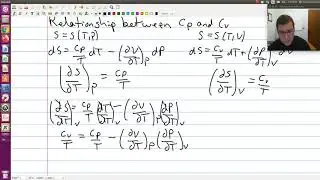 Relationship between Cp and Cv
S=S(T,P) S=S(T,V)
dS=Cp/T dT-(∂V/∂T)P dP dS=Cv/T dT+(∂P/∂T)V dV
(∂S/∂T)P=Cp/T (∂S/∂T)V=Cv/T
(∂S/∂T)V=Cp/T(∂T/∂T)V-(∂V/∂T)P(∂P/∂T)V
Cv/T=Cp/T-(∂V/∂T)P(∂P/∂T)V